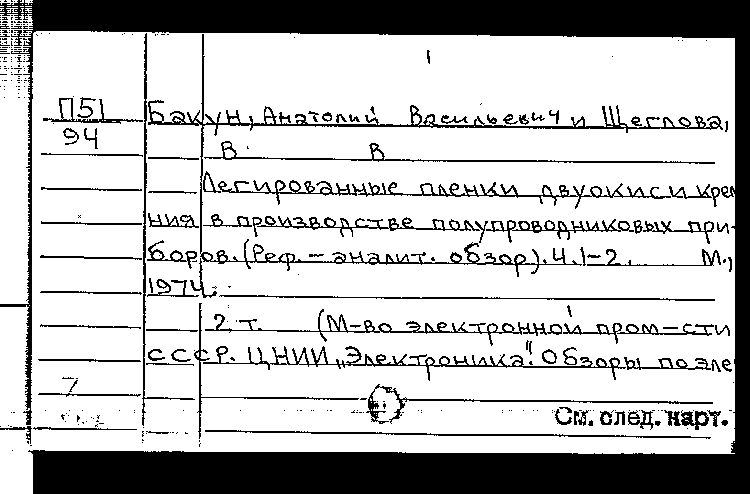 1
П51
94
Бакун, Анатолий Васильевич и Щеглова,
В. В
Легированные пленки двуокиси крем
ния в производстве полупроводниковых при-
боров. (Реф. - аналит. обзор). Ч. 1-2. М.,
1974.
2 т. (М-во электронной пром-сти
СССР. ЦНИИ „Электроника". Обзоры по эле
7
См. след. карт.